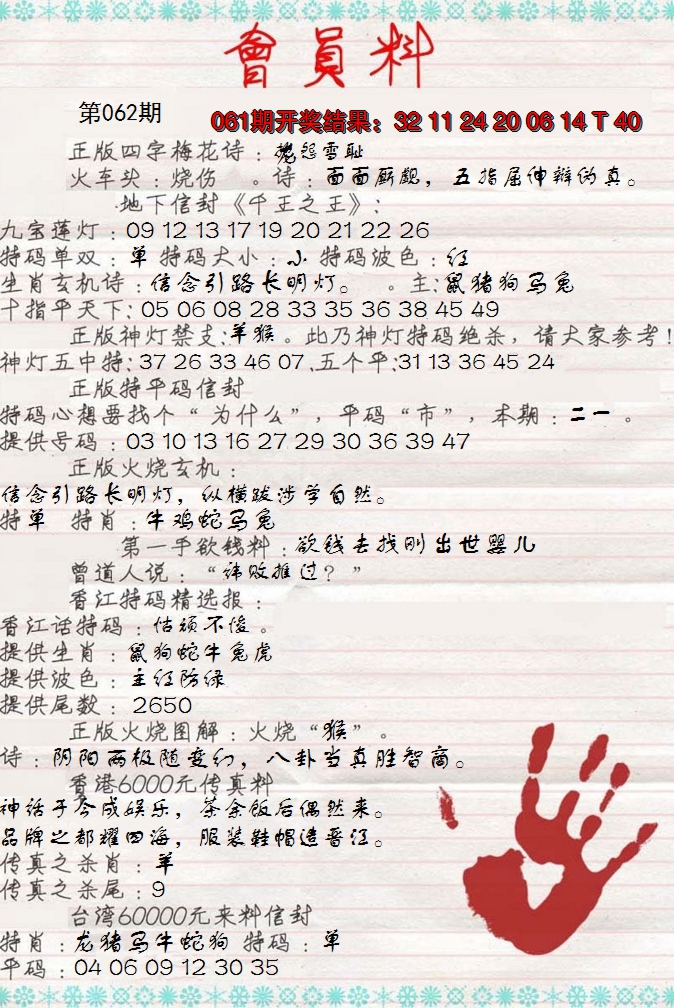 會員料
第062期
061期开奖结果：32 11 24 20 06 14 T 40
正版四字梅花诗：怨雪耻
火车头：烧伤　。诗：面面厮觑，五指屈伸辩伪真。
地下信封《千王之王》：
九宝莲灯：09 12 13 17 19 20 21 22 26
特码单双：单 特码大小：小 特码波色：红
生肖玄机诗：信念引路长明灯。　。主：鼠猪狗马兔
十指平天下：05 06 08 28 33 35 36 38 45 49
正版神灯禁支：羊猴。此乃神灯特码绝杀，请大家参考！
神灯五中特：37 26 33 46 07.五个平：31 13 36 45 24
正版特平码信封
特码心想要找个“为什么”，平码“市”，本期：二一。
提供号码：03 10 13 16 27 29 30 36 39 47
正版火烧玄机：
信念引路长明灯，纵横跋涉学自然。
特单　特肖：牛鸡蛇马兔
第一手欲钱料：欲钱去找刚出世婴儿
曾道人说：“讳败推过？”
香江特码精选报：
香江话特码：怙顽不悛。
提供生肖：鼠狗蛇牛兔虎
提供波色：主红防绿
提供尾数：2650
正版火烧图解：火烧“猴”。
诗：阴阳两极随变幻，八卦当真胜智商。
香港6000元传真料
神话于今成娱乐，茶余饭后偶然来。
品牌之都耀四海，服装鞋帽造晋江。
传真之杀肖：羊
传真之杀尾：9
台湾60000元来料信封
特肖：龙猪马牛蛇狗 特码：单
平码：04 06 09 12 30 35